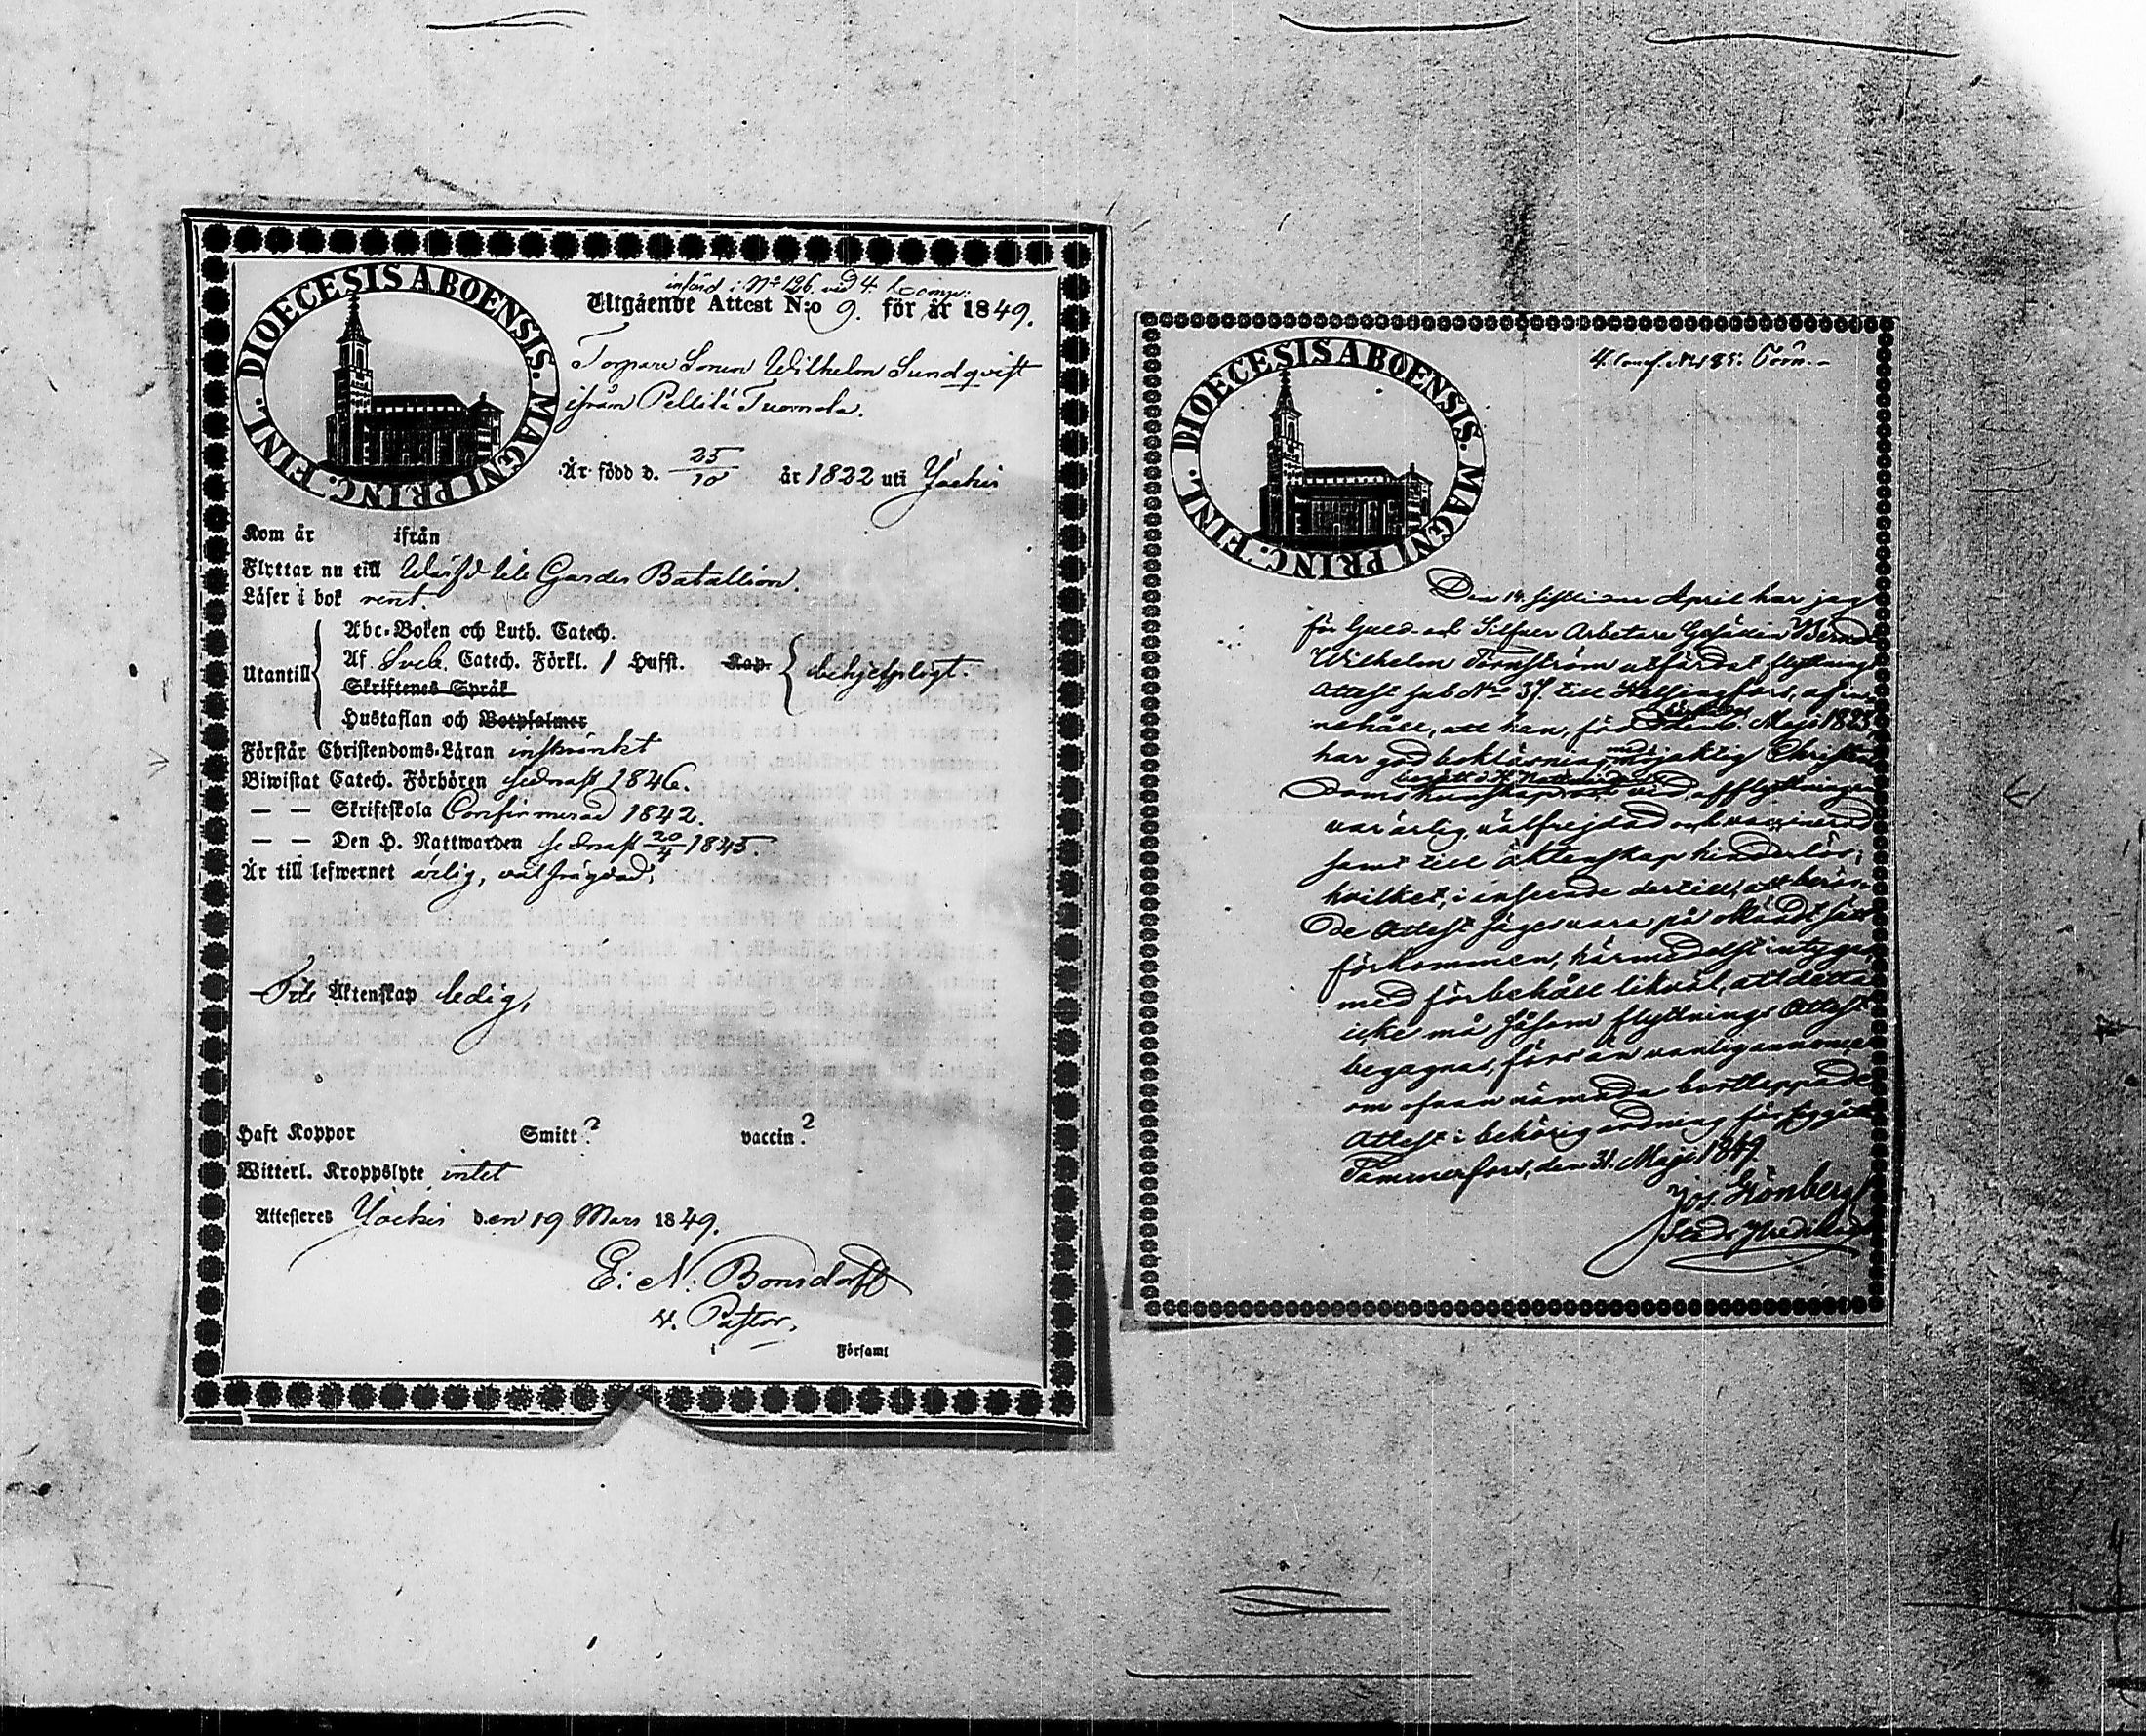 DIOECESIS ABOENSIS. MAGNI PRINC. FINL.
införd i No 126. vid 4. Comp:
Utgående Attest N:o 9. för år 1849.
Torpare Sonen Wilhelm Sundqvist
ifrån Pellilä Tuomola.
Är född d. 25/10 år 1822 uti Jockis
Kom år ifrån
Flyttar nu till Gardes Batallion.
Läser i bok rent.
Utantill
Abc-Boken och Luth. Catech.
Af Sveb. Catech. Förkl. / Hufft. Kap.
Skriftenes Språk
Hustaflan och Botpsalmer
behjelpligt.
Förstår Christendoms-Läran inskränkt
Biwistat Catech. Förhören sednast 1846.
— — Skriftskola Confirmerad 1842.
— — Den H. Nattwarden sednast 20/4 1845.
Är till lefwernet ärlig, välfrägdad,
Till Äktenskap ledig,
Haft Koppor Smitt? vaccin?
Witterl. Kroppslyte intet
Attesteres Jockis den 19 Mars 1849.
E. N. Bonsdorff
v. Pastor,
i Församl
DIOECESIS ABOENSIS. MAGNI PRINC. FINL.
Den 14 sistlidne April har jag
för Guld- och Silfver Arbetare Gesällen Bernd
Wilhelm Törnström utfärdat flyttnings
Attest sub No 37 till Helsingfors, af in-
nehåll, att han, född Maji 1823,
har god bokläsning, med Christen-
begått d. H. Nattvard
doms kunskap vid afflyttningen
var ärlig, välfrejdad och vaccinerad
samt till äktenskap hinderlös;
hvilket, i anseende dertill, att berör-
de Attest säges vara på okändt sätt
förkommen, härmedelst intygas,
med förbehåll likväl, att detta
icke må såsom flyttnings Attest
begagnas, förrän vanlig annonce
om ofvan nämnda bortlappade
Attest i behörig ordning föregått
Tammerfors, den 31. Maji 1849.
Jos. Grönberg
Stads Predikant